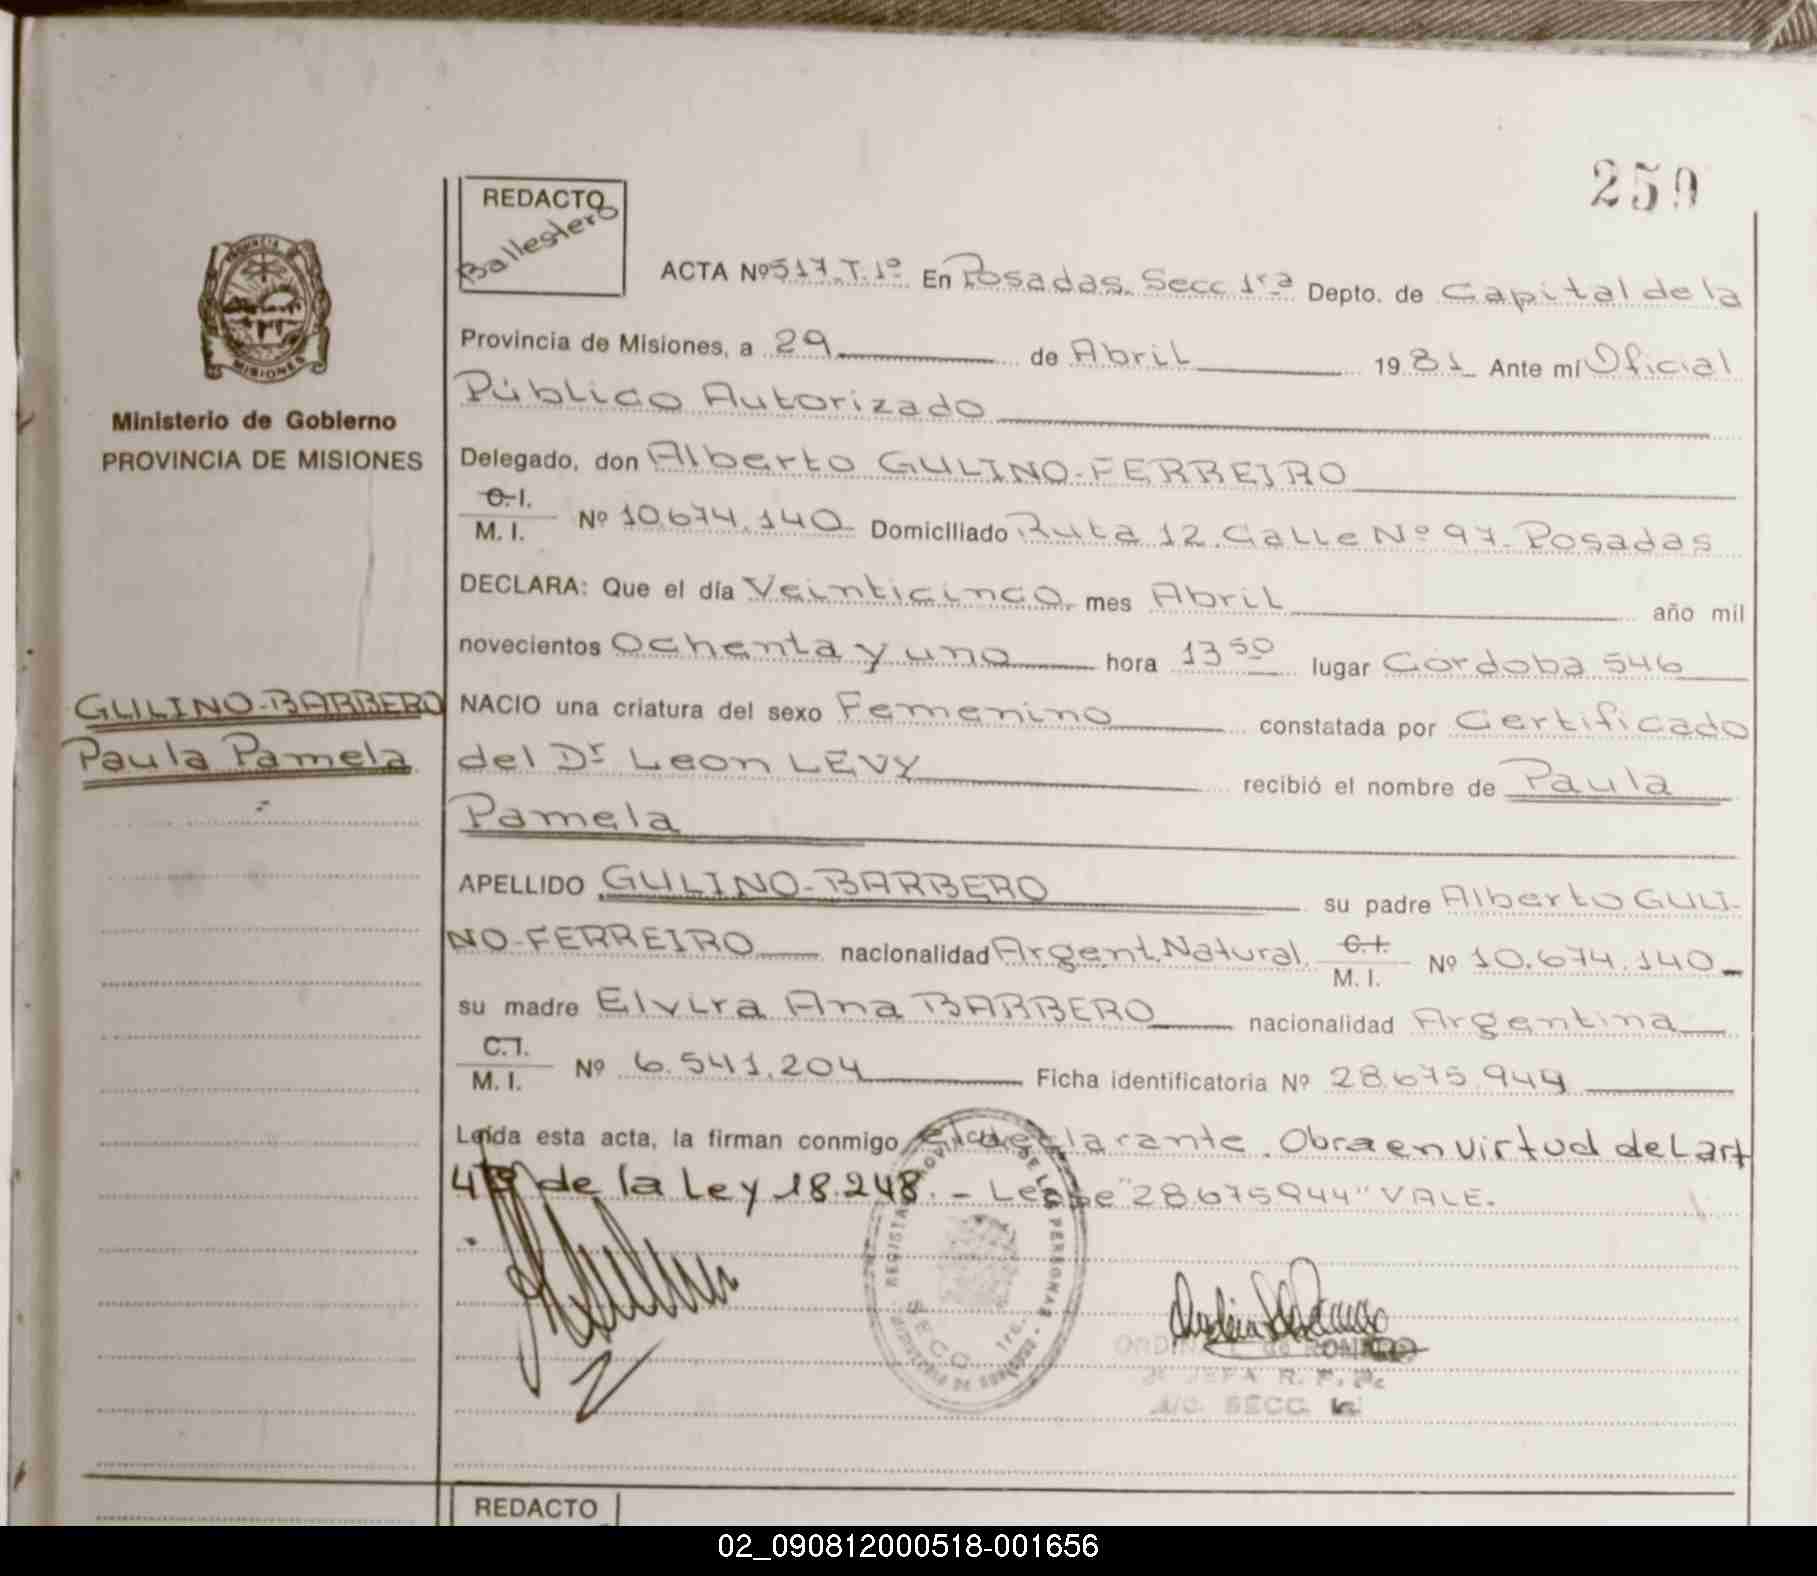 259
REDACTO
Ballestero
ACTA Nº 517. T. 1º En Posadas. Secc 1ra Depto. de Capital de la
Provincia de Misiones, a 29 de Abril 1981 Ante mí Oficial
Público Autorizado
Ministerio de Gobierno
PROVINCIA DE MISIONES
MISIONES
Delegado, don Alberto GULINO-FERREIRO
C.I.
M. I. Nº 10.674.140 Domiciliado Ruta 12. Calle Nº 97. Posadas
DECLARA: Que el día Veinticinco mes Abril año mil
novecientos Ochenta y uno hora 13 50 lugar Córdoba 546
GULINO-BARBERO
Paula Pamela
NACIO una criatura del sexo Femenino constatada por Certificado
del Dr Leon LEVY recibió el nombre de Paula
Pamela
APELLIDO GULINO-BARBERO su padre Alberto GULI-
NO-FERREIRO nacionalidad Argent. Natural. C.I.
M. I. Nº 10.674.140
su madre Elvira Ana BARBERO nacionalidad Argentina
C.I.
M. I. Nº 6.541.204 Ficha identificatoria Nº 28.675.944
Leída esta acta, la firman conmigo el declarante. Obra en virtud del art
4º de la Ley 18.248. - Lease "28.675944" VALE.
REGISTRO PROVINCIAL DE LAS PERSONAS
SECC. 1ra.
de ROMERO
JEFA R. P. P.
A/C. SECC. 1a
REDACTO
02_090812000518-001656